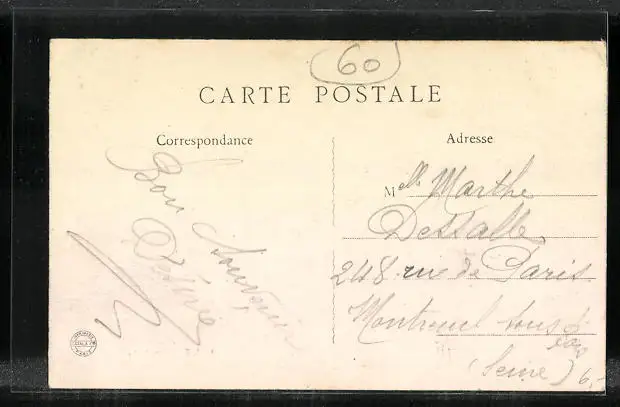 60
CARTE POSTALE
Correspondance
Adresse
Bon Souvenir
Désiré
Melle Marthe
Dessalle
248 rue de Paris
Montreuil sous
Bois
(Seine)
6,-